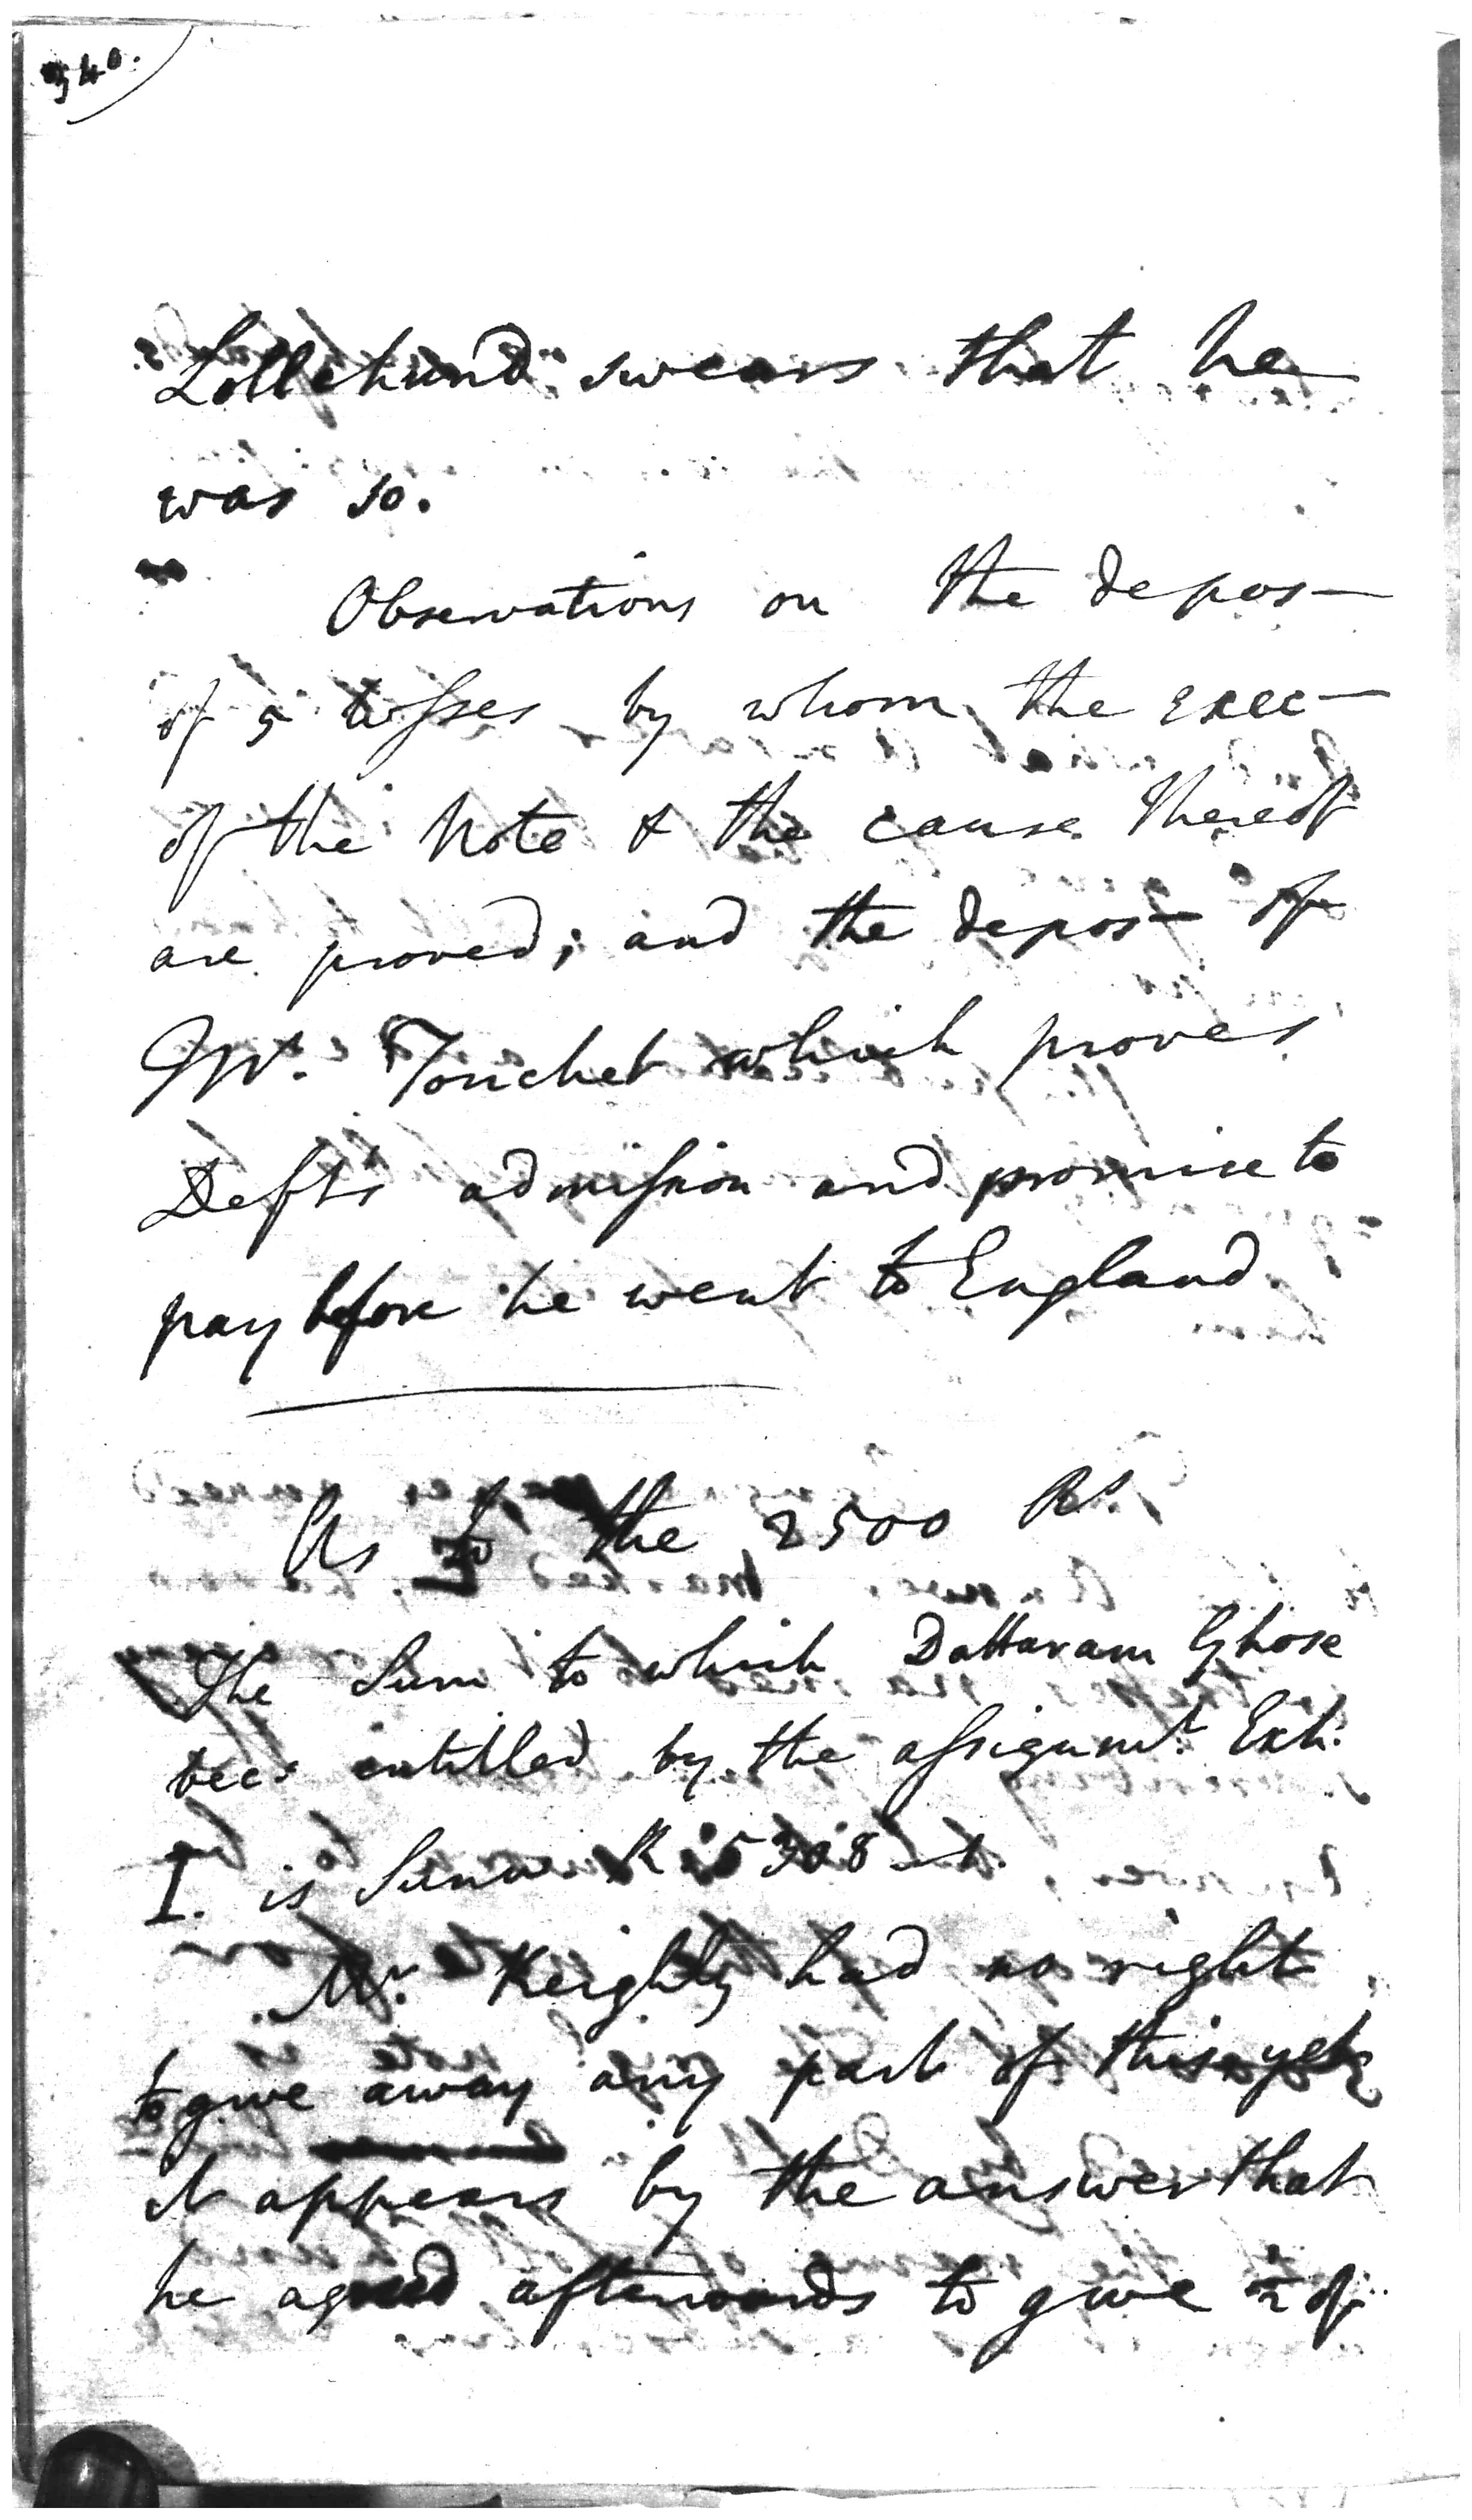 40.
Lollchund swears that he
was so.
Observations on the depos—
of 5 wesses by whom the exec—
of the Note & the cause thereof
are proved; and the depos— of
Mr. Touchet which proves
Defts admission and promise to
pay before he went to England
As to the 2500 Rs.
The Sum to which Dattaram Ghose
became entitled by the assignmt. Exh:
I. is Sicca R 5308
Mr. Keighly had no right
to give away any part of this yet
it appears by the answer that
he agreed afterwards to give ½ of